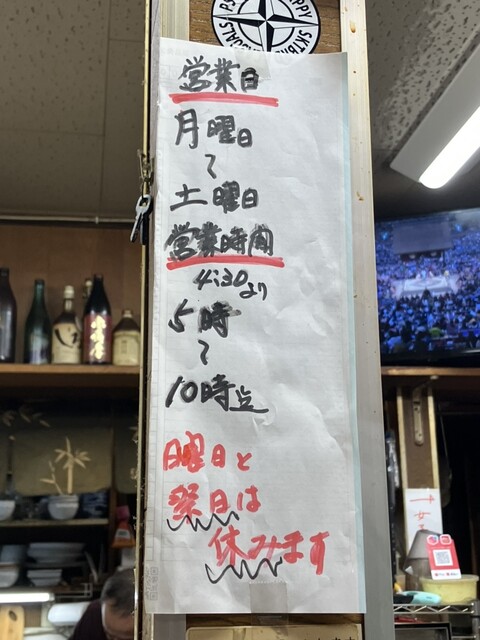 営業日
月曜日
〜
土曜日
営業時間
4:30より
5時
〜
10時迄
日曜日と
祭日は
休みます